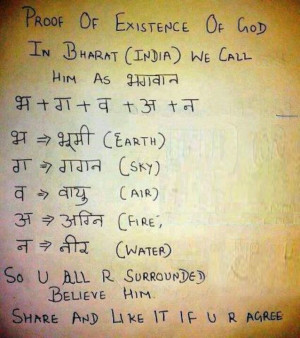 PROOF OF EXISTENCE OF GOD
IN BHARAT (INDIA) WE CALL
HIM AS भगवान
भ + ग + व + अ + न
भ ⇒ भूमी (EARTH)
ग ⇒ गगन (SKY)
व ⇒ वायु (AIR)
अ ⇒ अग्नि (FIRE,
न ⇒ नीर (WATER)
SO U ALL R SURROUNDED
BELIEVE HIM.
SHARE AND LIKE IT IF U R AGREE